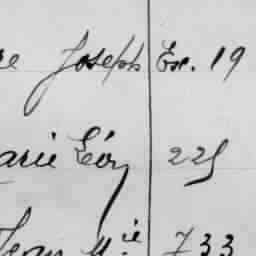 re Joseph Ex. 19
arie Léon 225
Jean M.ie 733